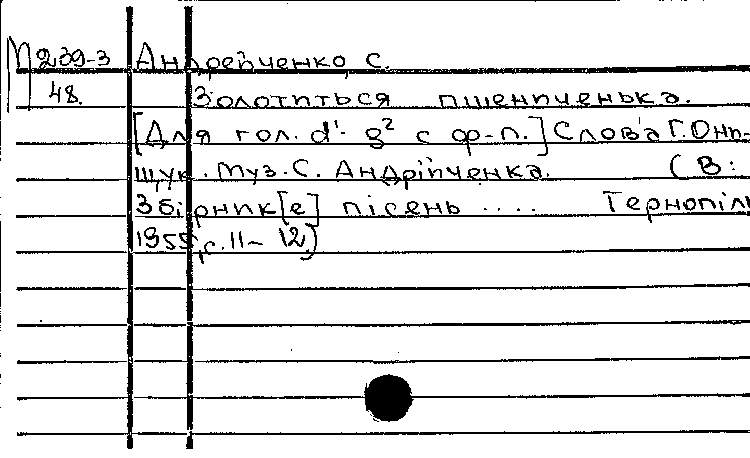 М 239-3 Андрейченко С.
48. Золотиться пшениченька.
[Для гол. d¹- g² с ф-п.] Слова Г. Они-
щук. Муз. С. Андрійченка. (В:
Збірник[е] пісень .... Тернопіль
1955, с. 11- 12)